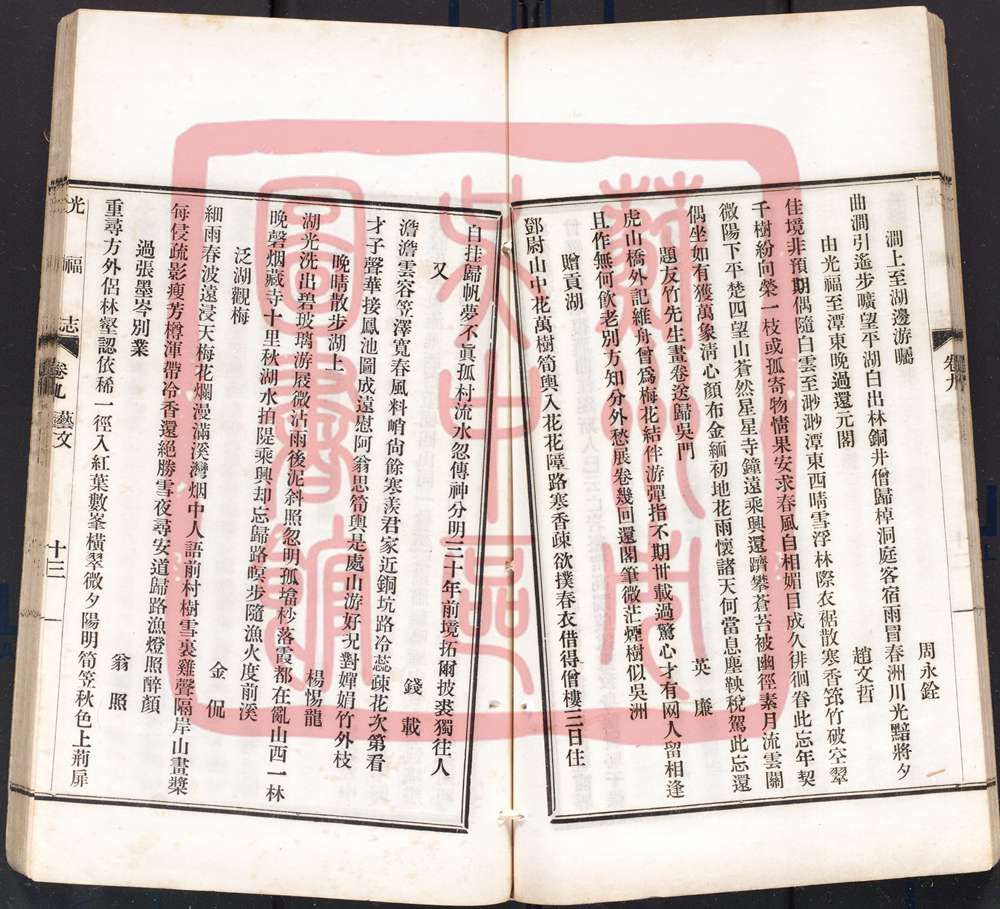 澗上至湖邊游矚
周永銓
曲澗引遙步曠望平湖白出林銅井僧歸棹洞庭客宿雨冒春洲川光黯將夕
由光福至潭東晚過還元閣
趙文哲
佳境非預期偶隨白雲至渺渺潭東西晴雪浮林際衣裾散寒香筇竹破空翠
千樹紛向榮一枝或孤寄物情果安求春風自相媚目成久徘徊眷此忘年契
微陽下平楚四望山蒼然星星寺鐘遠乘興還躋攀蒼苔被幽徑素月流雲關
偶坐如有獲萬象清心顏布金緬初地花雨懷諸天何當息塵鞅稅駕此忘還
題友竹先生畫卷送歸吳門
英廉
虎山橋外記維舟曾爲梅花結伴游彈指不期卅載過驚心才有网人留相逢
且作無何飲老別方知分外愁展卷幾回還閣筆微茫煙樹似吳洲
贈貢湖
鄧尉山中花萬樹筍輿入花花障路寒香疎欲撲春衣借得僧樓三日住
卷九
自挂歸帆夢不眞孤村流水忽傳神分明三十年前境拓爾披裘獨往人
又
錢載
澹澹雲容笠澤寬春風料峭尙餘寒羨君家近銅坑路冷蕊疎花次第看
才子聲華接鳳池圖成遠慰阿翁思筍輿是處山游好況對嬋娟竹外枝
晚晴散步湖上
楊惕龍
湖光洗出碧玻璃游屐微沾雨後泥斜照忽明孤塔杪落霞都在亂山西一林
晚磬烟藏寺十里秋湖水拍隄乘興却忘歸路暝步隨漁火度前溪
泛湖觀梅
金侃
細雨春波遠浸天梅花爛漫滿溪灣烟中人語前村樹雪裏雞聲隔岸山畫槳
每侵疏影瘦芳樽渾帶冷香還絕勝雪夜尋安道歸路漁燈照醉顏
過張墨岑別業
翁照
重尋方外侶林壑認依稀一徑入紅葉數峯橫翠微夕陽明筍笠秋色上荊扉
光福志
卷九
藝文
十三
蘇州市
吳中區
圖書館